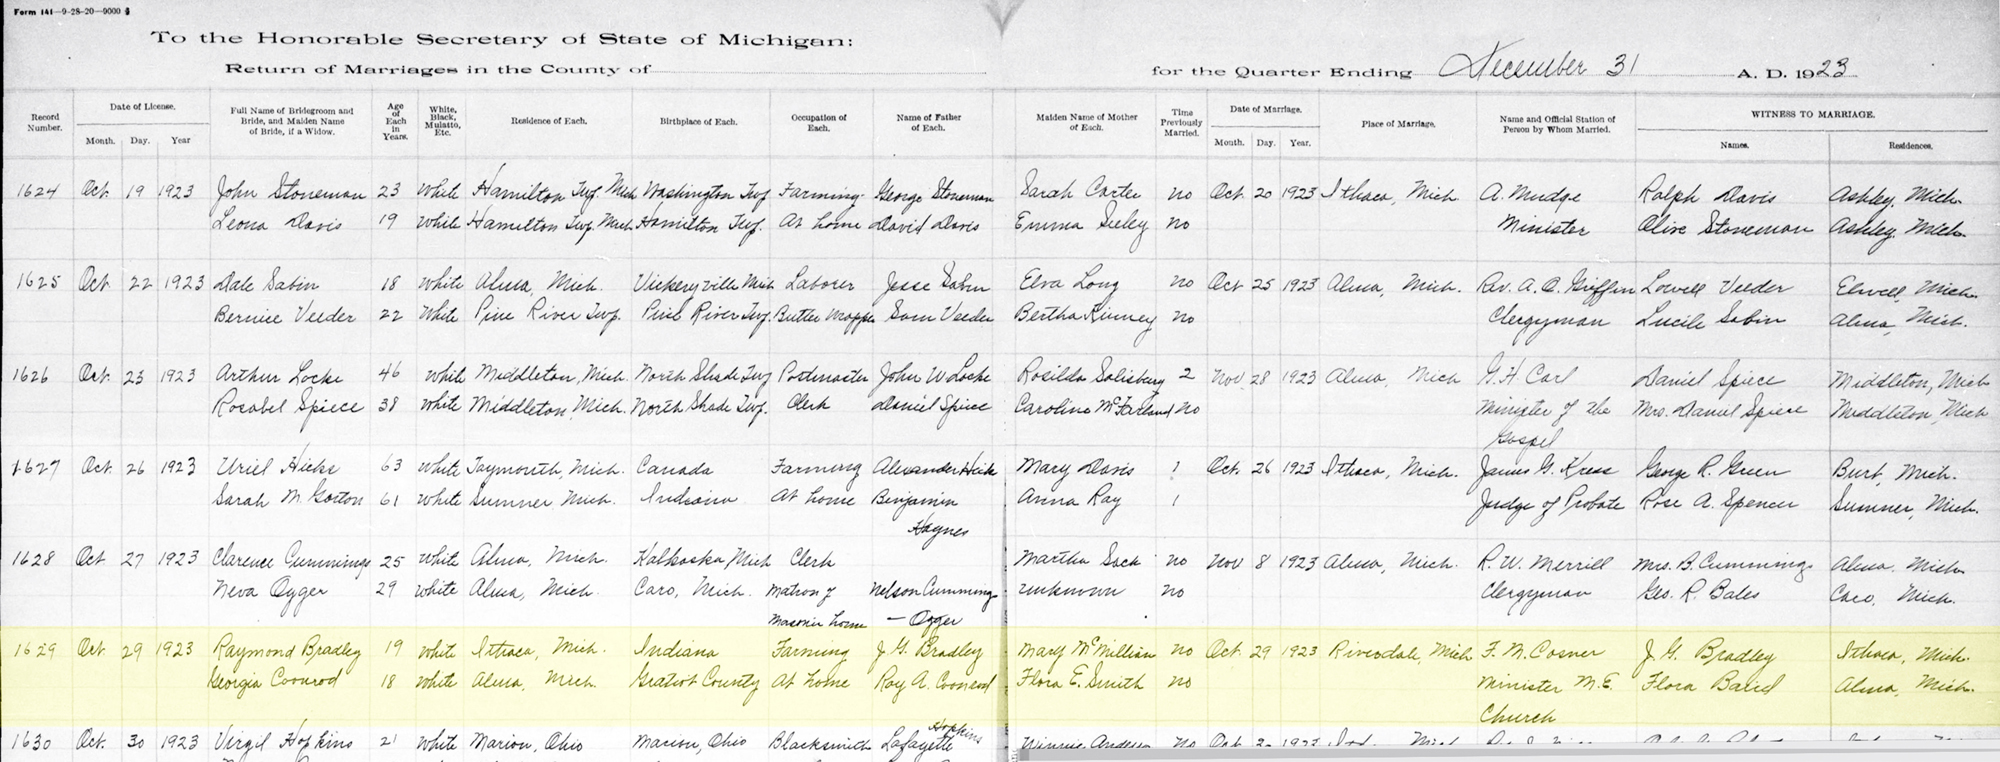 Form 141—9-28-20—9000
To the Honorable Secretary of State of Michigan:
Return of Marriages in the County of
for the Quarter Ending December 31 A. D. 1923
Record Number.
Date of License.
Month. Day. Year
Full Name of Bridegroom and Bride, and Maiden Name of Bride, if a Widow.
Age of Each in Years.
White, Black, Mulatto, Etc.
Residence of Each.
Birthplace of Each.
Occupation of Each.
Name of Father of Each.
Maiden Name of Mother of Each.
Time Previously Married.
Date of Marriage.
Month. Day. Year.
Place of Marriage.
Name and Official Station of Person by Whom Married.
WITNESS TO MARRIAGE.
Names. Residences.
1624 Oct. 19 1923 John Stoneman 23 White Hamilton Twp. Mich Washington Twp Farming George Stoneman Sarah Carter no Oct. 20 1923 Ithaca, Mich. A. Mudge Ralph Davis Ashley, Mich.
Leona Davis 19 White Hamilton Twp. Mich Hamilton Twp. At home David Davis Emma Seeley no Minister Olive Stoneman Ashley, Mich.
1625 Oct. 22 1923 Dale Sabin 18 White Alma, Mich. Vickeryville Mich Laborer Jesse Sabin Elva Long no Oct 25 1923 Alma, Mich. Rev. A. O. Griffin Lowell Veeder Elwell, Mich.
Bernise Veeder 22 White Pine River Twp. Pine River Twp. Butter Wrapper Sam Veeder Bertha Kinney no Clergyman Lucile Sabin Alma, Mich.
1626 Oct. 23 1923 Arthur Locke 46 White Middleton, Mich. North Shade Twp Postmaster John W Locke Rosilda Salisbury 2 Nov 28 1923 Alma, Mich G. H. Carl Daniel Spiece Middleton, Mich
Rosabel Spiece 38 White Middleton, Mich. North Shade Twp. Clerk Daniel Spiece Caroline McFarland no Minister of the Mrs. Daniel Spiece Middleton, Mich
Gospel
1627 Oct. 26 1923 Uriel Hicks 63 White Taymouth, Mich. Canada Farming Alexander Hicks Mary Davis 1 Oct. 26 1923 Ithaca, Mich. James G. Kress George R. Green Burt, Mich.
Sarah M. Gorton 61 White Sumner, Mich. Indiana At home Benjamin Anna Ray 1 Judge of Probate Rose A. Spencer Sumner, Mich.
Haynes
1628 Oct. 27 1923 Clarence Cummings 25 White Alma, Mich. Kalkaska, Mich Clerk Martha Sack no Nov 8 1923 Alma, Mich. R. W. Merrill Mrs. B. Cummings Alma, Mich.
Neva Ogger 29 White Alma, Mich. Caro, Mich. Matron of Nelson Cumming Unknown no Clergyman Geo. R. Bates Caro, Mich.
Masonic home — Ogger
1629 Oct. 29 1923 Raymond Bradley 19 White Ithaca, Mich. Indiana Farming J G. Bradley Mary McMillian no Oct. 29 1923 Riverdale, Mich F. M. Cosner J. G. Bradley Ithaca, Mich.
Georgia Coonrod 18 White Alma, Mich. Gratiot County At home Ray A. Coonrod Flora E. Smith no Minister M. E. Flora Baird Alma, Mich.
Church
Hopkins
1630 Oct. 30 1923 Virgil Hopkins 21 White Marion, Ohio Marion, Ohio Blacksmith Lafayette Winnie no Oct 1923 Mich